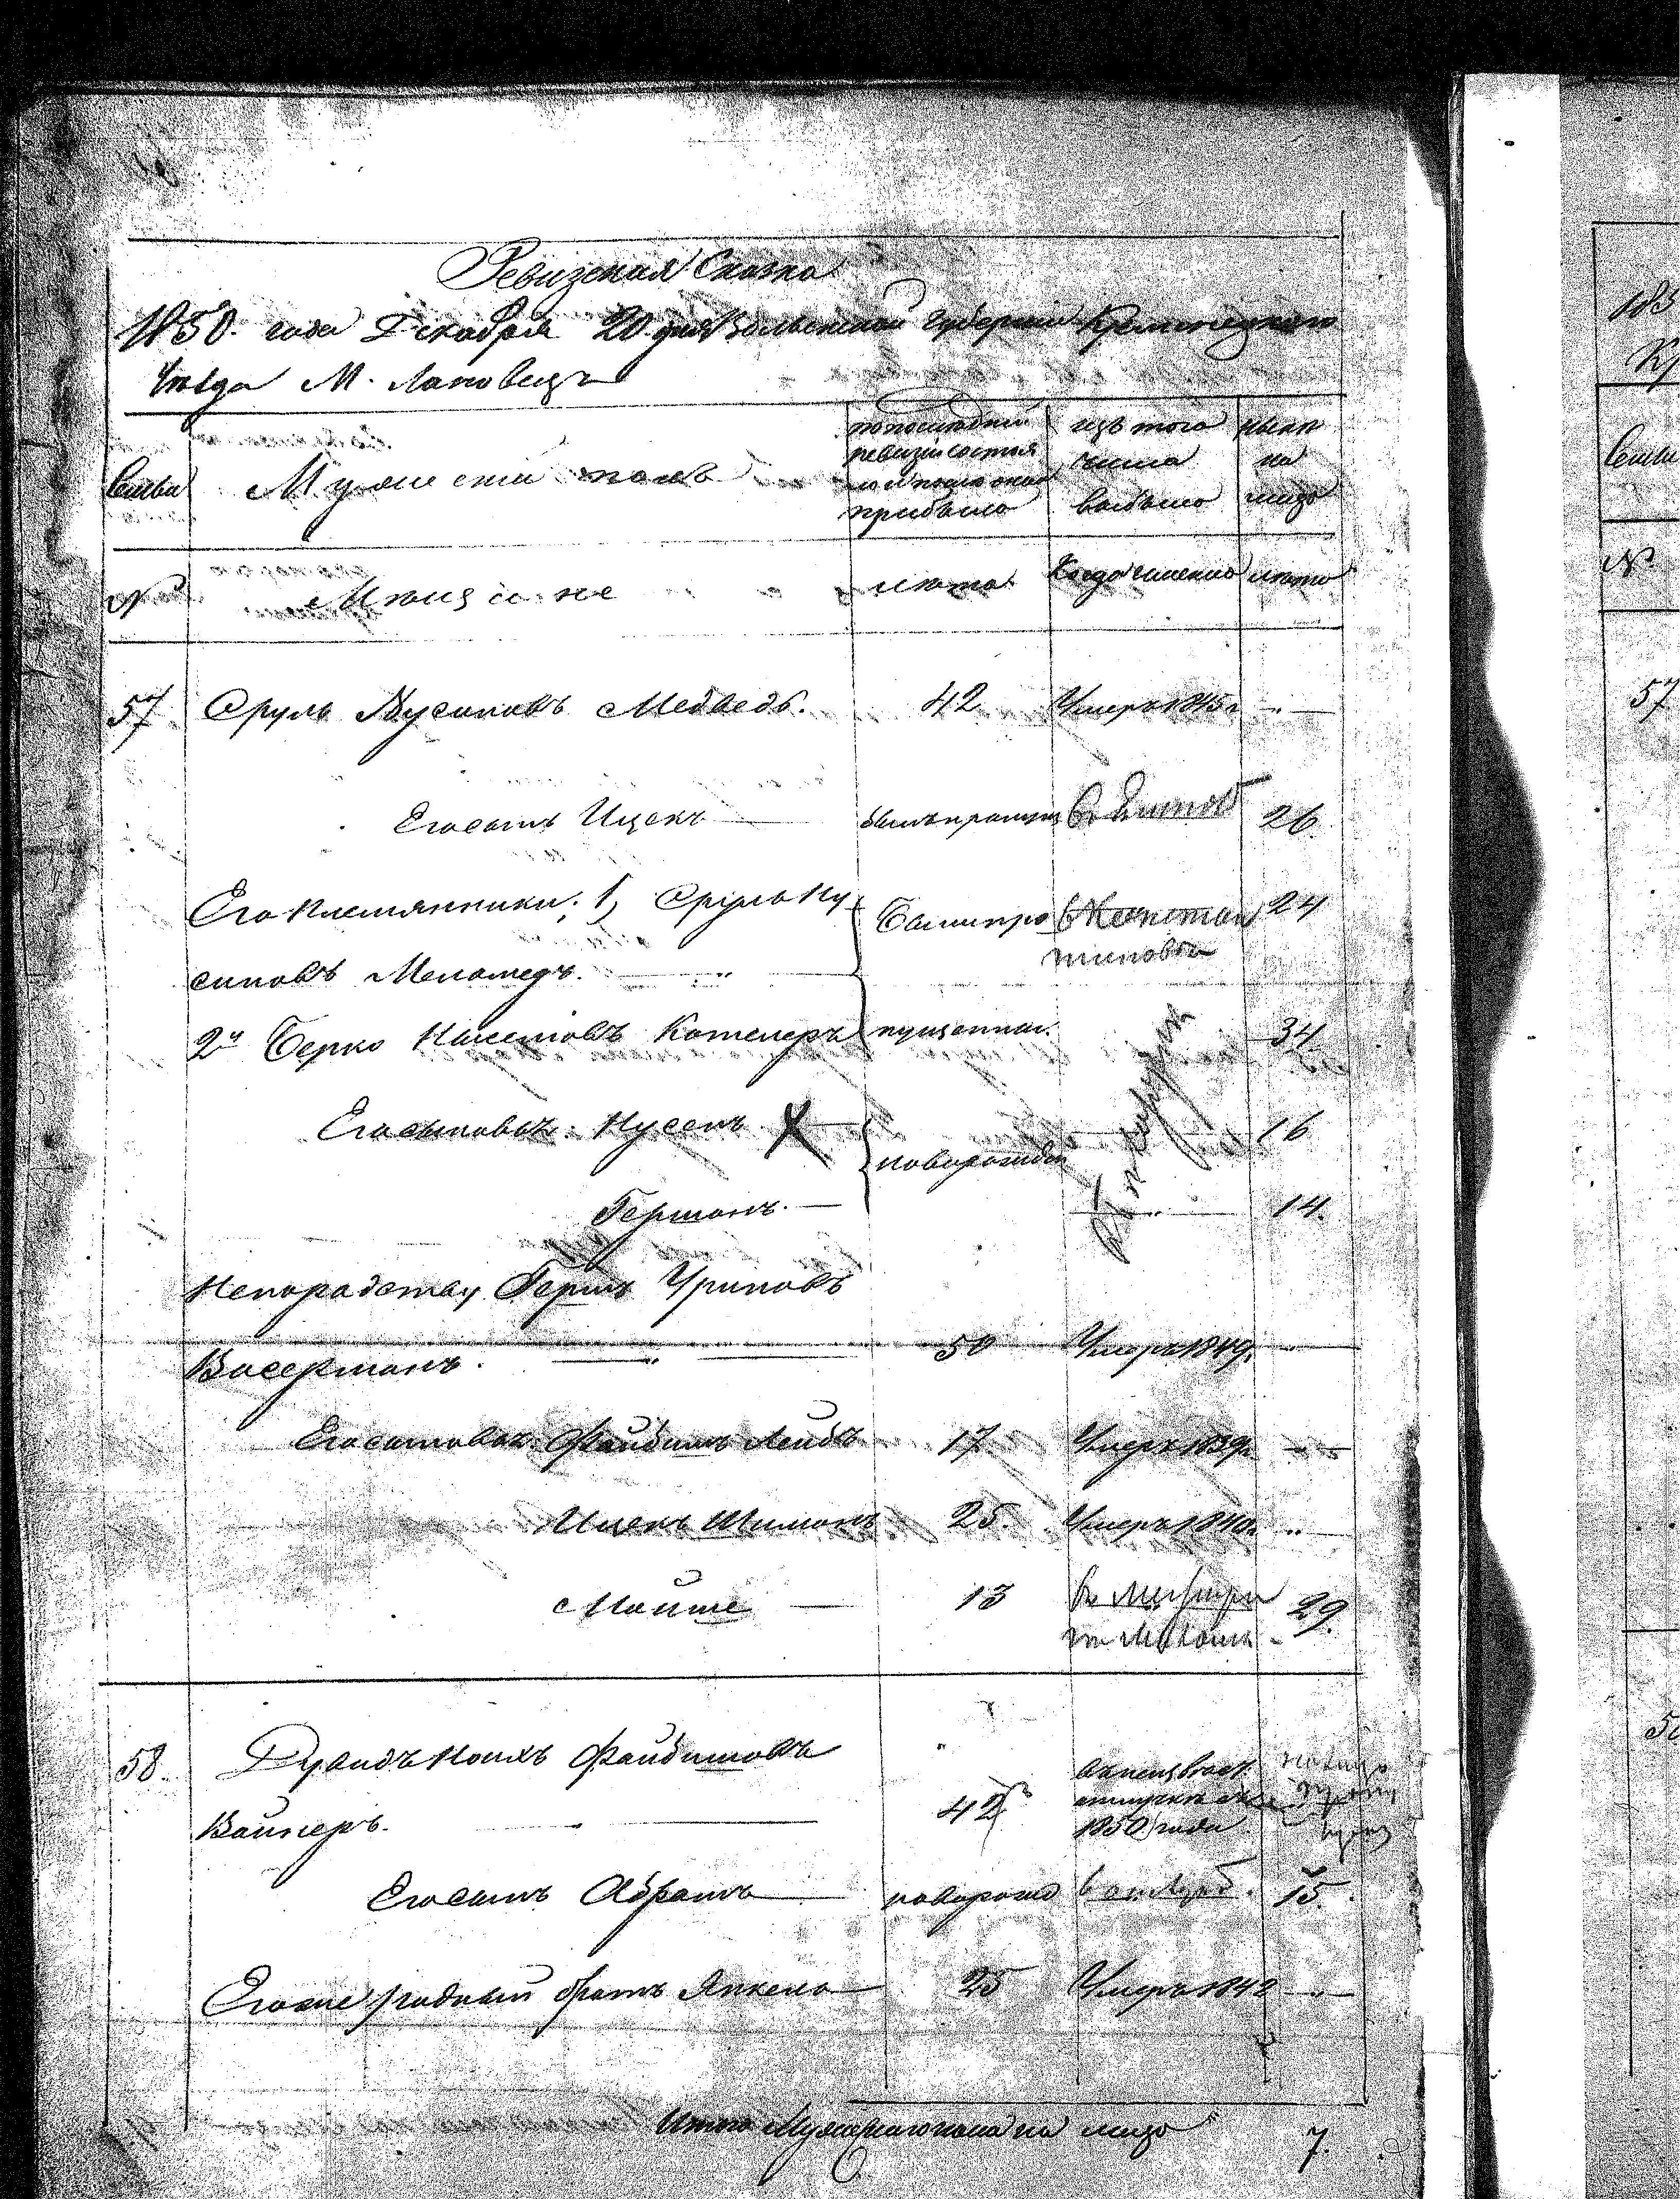 Ревизская Сказка
1850. года Декабря 20 дня Волынской губернии Кременецкаго
Уезда М. Лановецъ
Семьи Мужескій полъ
по последней ревизіи состояло и после оной прибыло
изъ того числа выбыло
ныне на лицо
№ Мещане лета Когда именно лета
57 Сруль Нусиновъ Медведь. 42 Умеръ 1845 г „ —
Его сынъ Ицекъ — былъ пропущ 26
Его племянники: 1, Сруль Ну- Были про 24
синовъ Меламедъ. — „
2й Берко Котелеръ пущенны. 34
Его сыновья: Нусень X — новорожден 16
Гершонъ. — 14.
Непорадству, Гершъ Уриновъ
Васерманъ. — „ — 50 Умеръ 1849. „ —
Его сыновья: Файбишъ Лейбъ 17 Умеръ 1839 г. „ —
Ицекъ Шимонъ 25. Умеръ 1840 г. „ —
Мойше — 13 29.
58. Дувидъ Файбишовъ
Вайнеръ. — 42 1850 года
Его сынъ Абрамъ — новорожд 15.
Его же родный братъ Янкель — 25 Умеръ 1842 „ —
Итого Мужескаго пола на лицо 7.
183
Семьи
№
57